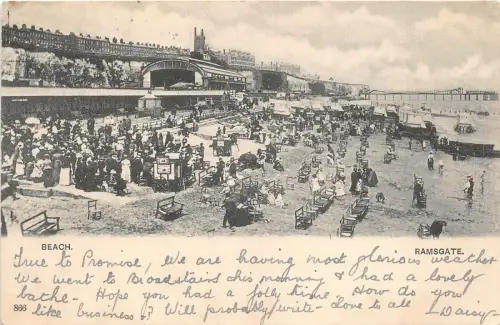 BEACH. RAMSGATE.
True to Promise, We are having most glorious weather
We went to Broadstairs this morning & had a lovely
bathe- Hope you had a jolly time. How do you
866 like business? Will probably write- Love to all - Daisy-